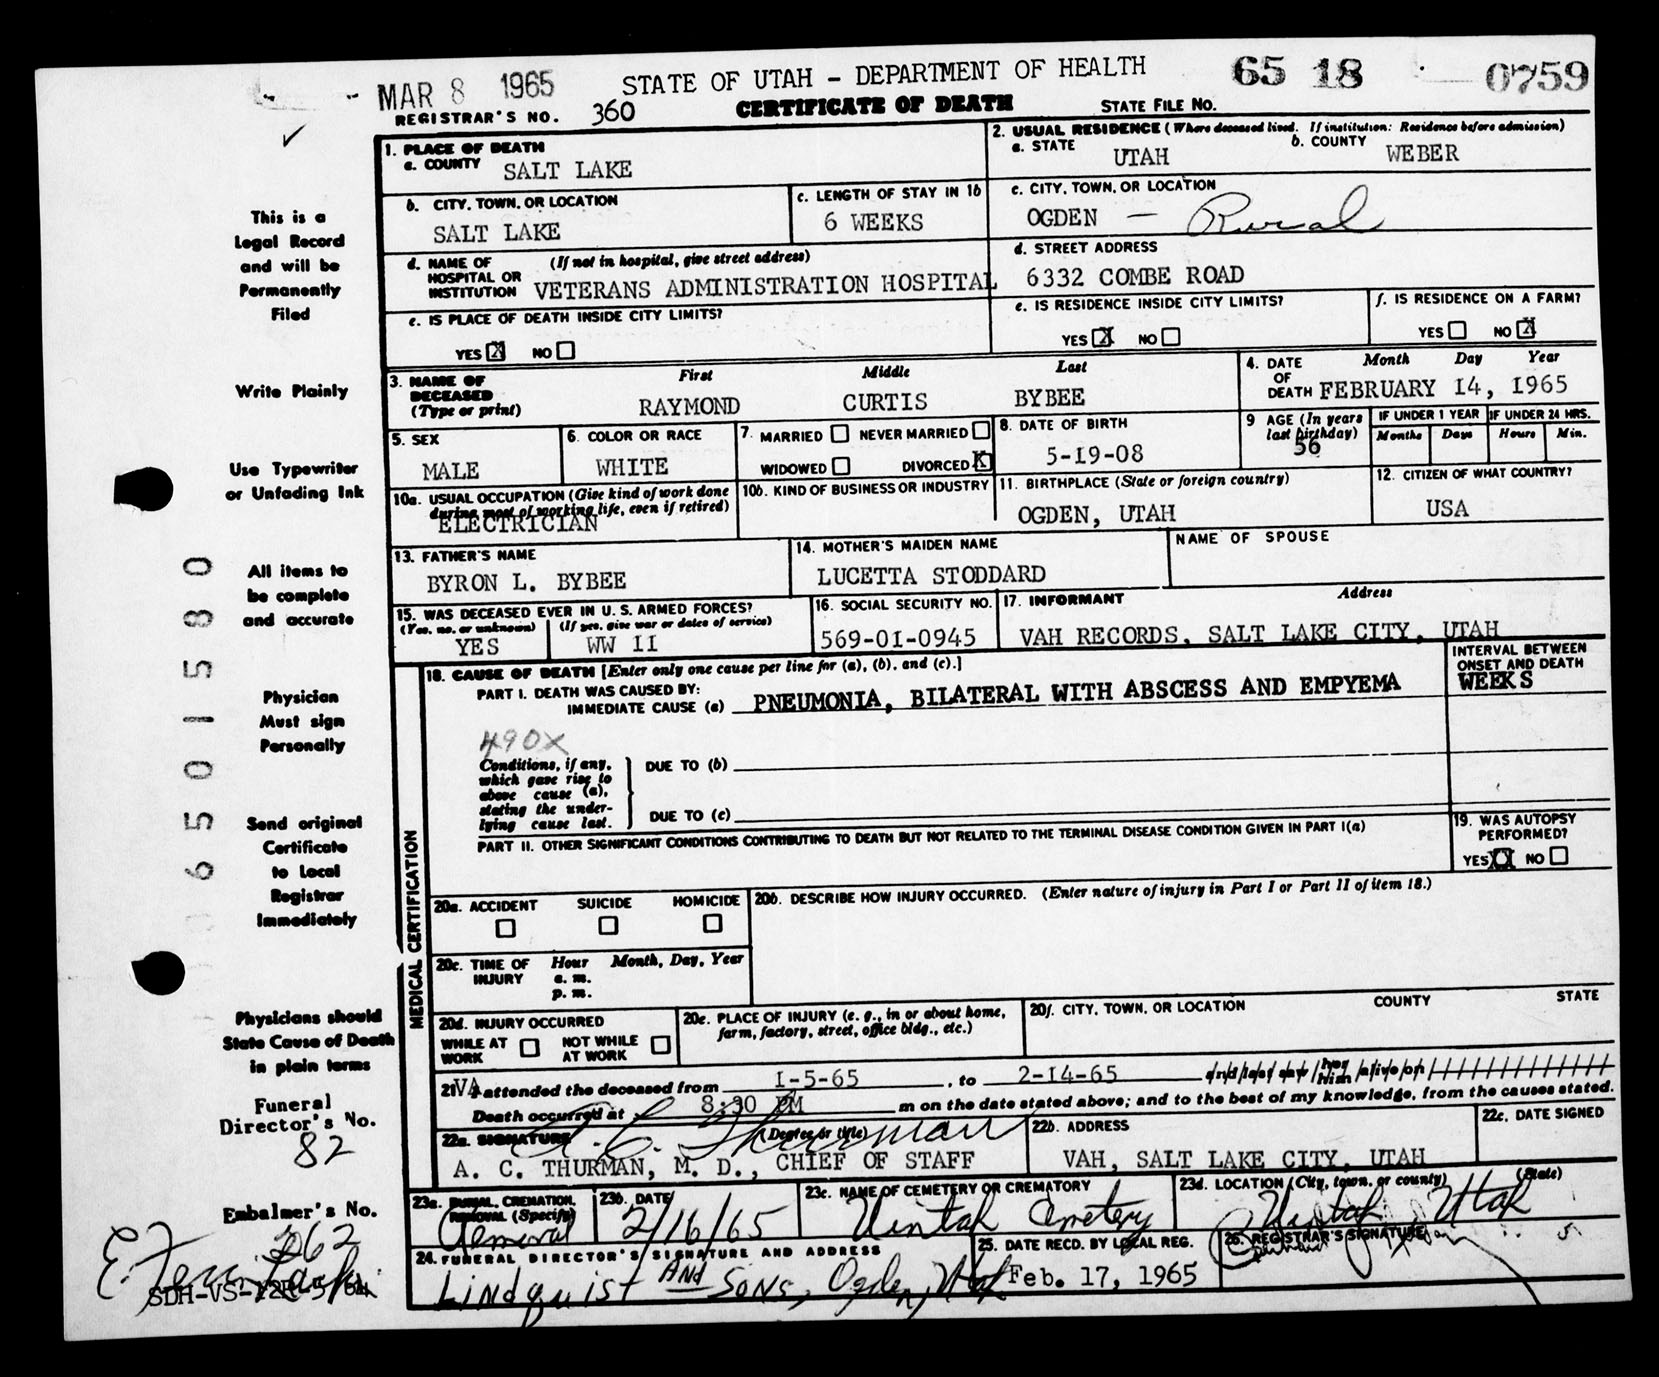 MAR 8 1965 STATE OF UTAH - DEPARTMENT OF HEALTH 65 18 0759
REGISTRAR'S NO. 360 CERTIFICATE OF DEATH STATE FILE NO.
1. PLACE OF DEATH
a. COUNTY SALT LAKE
2. USUAL RESIDENCE (Where deceased lived. If institution: Residence before admission)
a. STATE UTAH b. COUNTY WEBER
b. CITY, TOWN, OR LOCATION SALT LAKE
c. LENGTH OF STAY IN 1b 6 WEEKS
c. CITY, TOWN, OR LOCATION
OGDEN — Rural
d. NAME OF HOSPITAL OR INSTITUTION (If not in hospital, give street address)
VETERANS ADMINISTRATION HOSPITAL
d. STREET ADDRESS
6332 COMBE ROAD
e. IS PLACE OF DEATH INSIDE CITY LIMITS?
YES X NO
e. IS RESIDENCE INSIDE CITY LIMITS?
YES X NO
f. IS RESIDENCE ON A FARM?
YES NO X
3. NAME OF DECEASED (Type or print)
First Middle Last
RAYMOND CURTIS BYBEE
4. DATE OF DEATH Month Day Year
FEBRUARY 14, 1965
5. SEX
MALE
6. COLOR OR RACE
WHITE
7. MARRIED NEVER MARRIED
WIDOWED DIVORCED X
8. DATE OF BIRTH
5-19-08
9 AGE (In years last birthday)
56
IF UNDER 1 YEAR IF UNDER 24 HRS.
Months Days Hours Min.
10a. USUAL OCCUPATION (Give kind of work done during most of working life, even if retired)
ELECTRICIAN
10b. KIND OF BUSINESS OR INDUSTRY
11. BIRTHPLACE (State or foreign country)
OGDEN, UTAH
12. CITIZEN OF WHAT COUNTRY?
USA
13. FATHER'S NAME
BYRON L. BYBEE
14. MOTHER'S MAIDEN NAME
LUCETTA STODDARD
NAME OF SPOUSE
15. WAS DECEASED EVER IN U. S. ARMED FORCES?
(Yes, no, or unknown) (If yes, give war or dates of service)
YES WW II
16. SOCIAL SECURITY NO.
569-01-0945
17. INFORMANT Address
VAH RECORDS, SALT LAKE CITY, UTAH
MEDICAL CERTIFICATION
18. CAUSE OF DEATH [Enter only one cause per line for (a), (b), and (c).]
PART I. DEATH WAS CAUSED BY:
IMMEDIATE CAUSE (a) PNEUMONIA, BILATERAL WITH ABSCESS AND EMPYEMA
INTERVAL BETWEEN ONSET AND DEATH
WEEKS
490X
Conditions, if any, which gave rise to above cause (a), stating the underlying cause last.
DUE TO (b)
DUE TO (c)
PART II. OTHER SIGNIFICANT CONDITIONS CONTRIBUTING TO DEATH BUT NOT RELATED TO THE TERMINAL DISEASE CONDITION GIVEN IN PART I(a)
19. WAS AUTOPSY PERFORMED?
YES X NO
20a. ACCIDENT SUICIDE HOMICIDE
20b. DESCRIBE HOW INJURY OCCURRED. (Enter nature of injury in Part I or Part II of item 18.)
20c. TIME OF INJURY Hour Month, Day, Year
a. m.
p. m.
20d. INJURY OCCURRED
WHILE AT WORK NOT WHILE AT WORK
20e. PLACE OF INJURY (e. g., in or about home, farm, factory, street, office bldg., etc.)
20f. CITY, TOWN, OR LOCATION COUNTY STATE
21. VA attended the deceased from 1-5-65, to 2-14-65 and last saw her him alive on
Death occurred at 8:30 PM m on the date stated above; and to the best of my knowledge, from the causes stated.
22a. SIGNATURE (Degree or title)
A. C. Thurman
A. C. THURMAN, M. D., CHIEF OF STAFF
22b. ADDRESS
VAH, SALT LAKE CITY, UTAH
22c. DATE SIGNED
23a. BURIAL, CREMATION, REMOVAL (Specify)
Removal
23b. DATE
2/16/65
23c. NAME OF CEMETERY OR CREMATORY
Uintah Cemetery
23d. LOCATION (City, town, or county) (State)
Uintah, Utah
24. FUNERAL DIRECTOR'S SIGNATURE AND ADDRESS
Lindquist AND SONS, Ogden, Utah
25. DATE RECD. BY LOCAL REG.
Feb. 17, 1965
26. REGISTRAR'S SIGNATURE
This is a
Legal Record
and will be
Permanently
Filed
Write Plainly
Use Typewriter
or Unfading Ink
All items to
be complete
and accurate
Physician
Must sign
Personally
Send original
Certificate
to Local
Registrar
Immediately
Physicians should
State Cause of Death
in plain terms
Funeral
Director's No.
82
Embalmer's No.
262
6501580